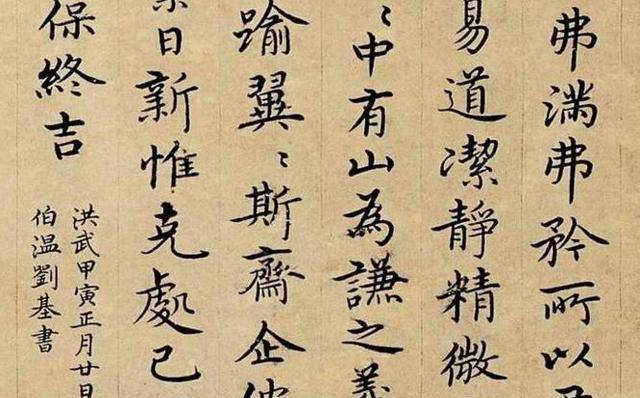 弗滿弗矜所以
易道潔靜精微
〻中有山為謙之義
踰翼〻斯齋企
日新惟克處已
保終吉
洪武甲寅正月廿日
伯温劉基書